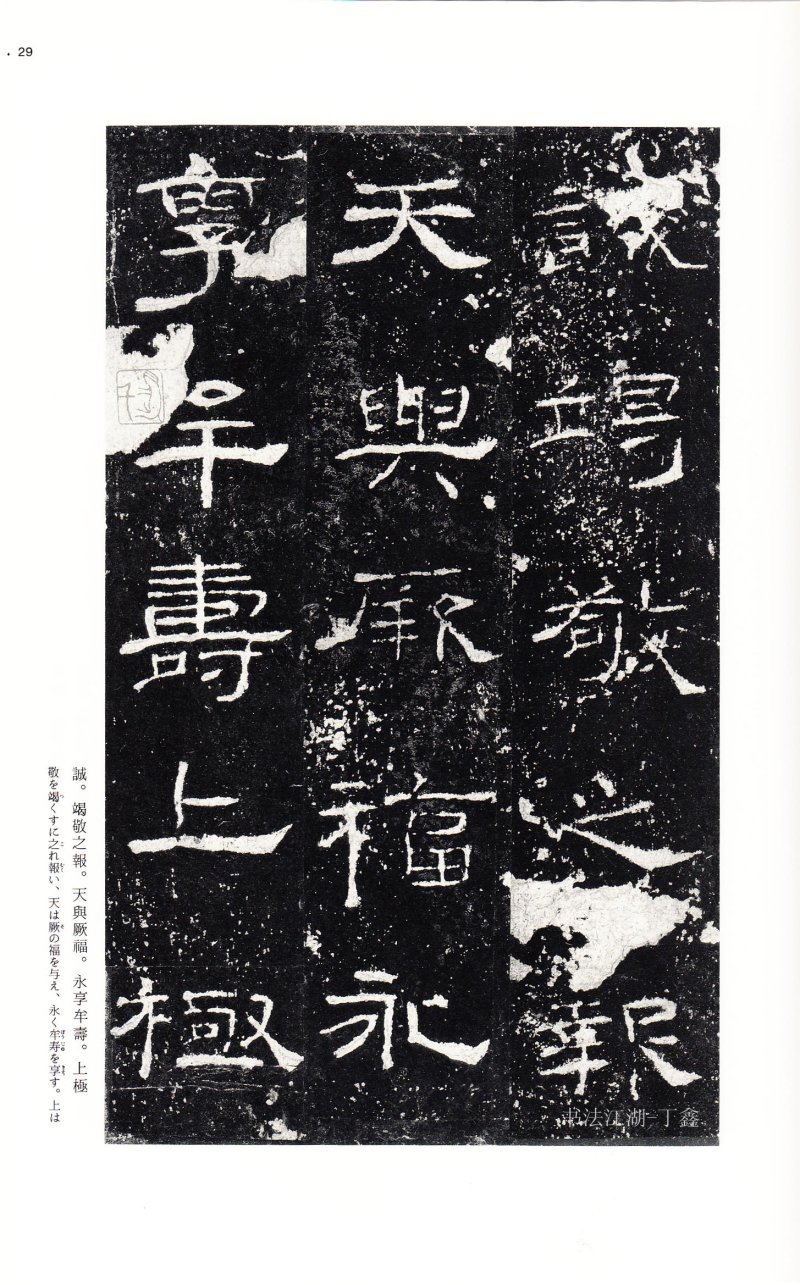 29
誠竭敬之報
天與厥福永
享牟壽上極
誠。竭敬之報。天與厥福。永享牟壽。上極
敬を竭くすに之れ報い、天は厥の福を与え、永く牟寿を享す。上は
书法江湖-丁鑫